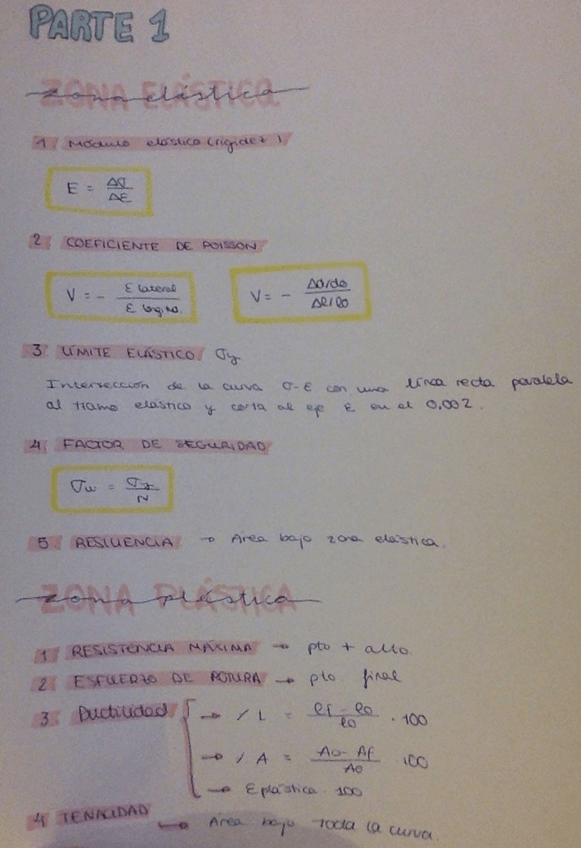 PARTE 1
ZONA ELÁSTICA
zona elástica
1 Módulo elástico (rigidez)
E = Δσ / ΔE
2 COEFICIENTE DE POISSON
V = - ε lateral / ε longitud. V = - Δd/do / Δl/lo
3 LÍMITE ELÁSTICO σy
Intersección de la curva σ-ε con una línea recta paralela
al tramo elástico y corta al eje ε en el 0,002.
4 FACTOR DE SEGURIDAD
σw = σy / N
5 RESILIENCIA → Área bajo zona elástica.
ZONA PLÁSTICA
zona plástica
1 RESISTENCIA MÁXIMA → pto + alto.
2 ESFUERZO DE ROTURA → pto final
3 Ductilidad → / L = lf - lo / lo · 100
→ / A = Ao - Af / Ao · 100
→ E plástica · 100
4 TENACIDAD → Área bajo toda la curva.